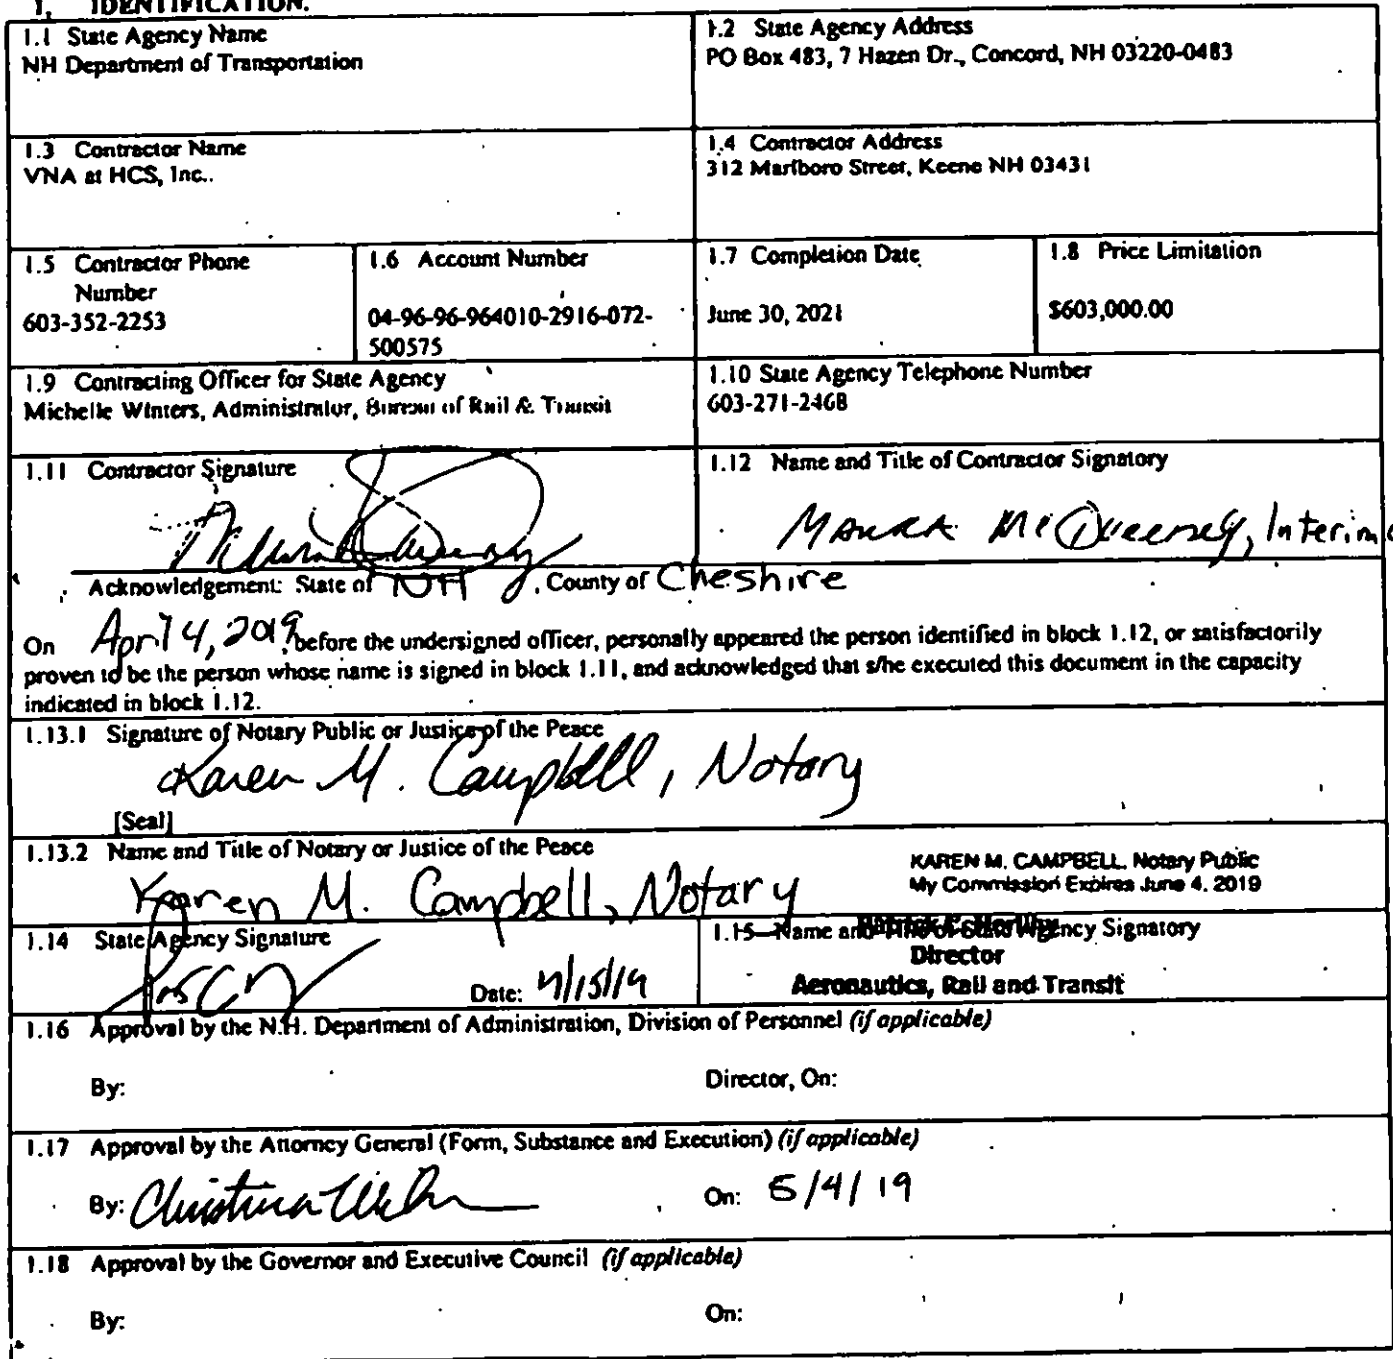 1. IDENTIFICATION.
1.1 State Agency Name
NH Department of Transportation
1.2 State Agency Address
PO Box 483, 7 Hazen Dr., Concord, NH 03220-0483
1.3 Contractor Name
VNA at HCS, Inc..
1.4 Contractor Address
312 Marlboro Street, Keene NH 03431
1.5 Contractor Phone
Number
603-352-2253
1.6 Account Number
04-96-96-964010-2916-072-
500575
1.7 Completion Date
June 30, 2021
1.8 Price Limitation
$603,000.00
1.9 Contracting Officer for State Agency
Michelle Winters, Administrator, Bureau of Rail & Transit
1.10 State Agency Telephone Number
603-271-2468
1.11 Contractor Signature
1.12 Name and Title of Contractor Signatory
Maura McQueeney, Interim
Acknowledgement: State of NH, County of Cheshire
On April 4, 2019, before the undersigned officer, personally appeared the person identified in block 1.12, or satisfactorily
proven to be the person whose name is signed in block 1.11, and acknowledged that s/he executed this document in the capacity
indicated in block 1.12.
1.13.1 Signature of Notary Public or Justice of the Peace
Karen M. Campbell, Notary
[Seal]
1.13.2 Name and Title of Notary or Justice of the Peace
Karen M. Campbell, Notary
KAREN M. CAMPBELL, Notary Public
My Commission Expires June 4, 2019
1.14 State Agency Signature
Date: 4/15/19
1.15 Name and Title of State Agency Signatory
Director
Aeronautics, Rail and Transit
1.16 Approval by the N.H. Department of Administration, Division of Personnel (if applicable)
By:
Director, On:
1.17 Approval by the Attorney General (Form, Substance and Execution) (if applicable)
By: Christina
On: 5/4/19
1.18 Approval by the Governor and Executive Council (if applicable)
By:
On: